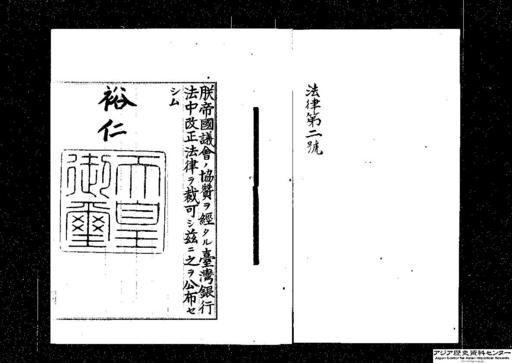 法律第二號
朕帝國議會ノ協贊ヲ經タル臺灣銀行
法中改正法律ヲ裁可シ茲ニ之ヲ公布セ
シム
裕仁
天皇
御璽
アジア歴史資料センター
Japan Center for Asian Historical Records